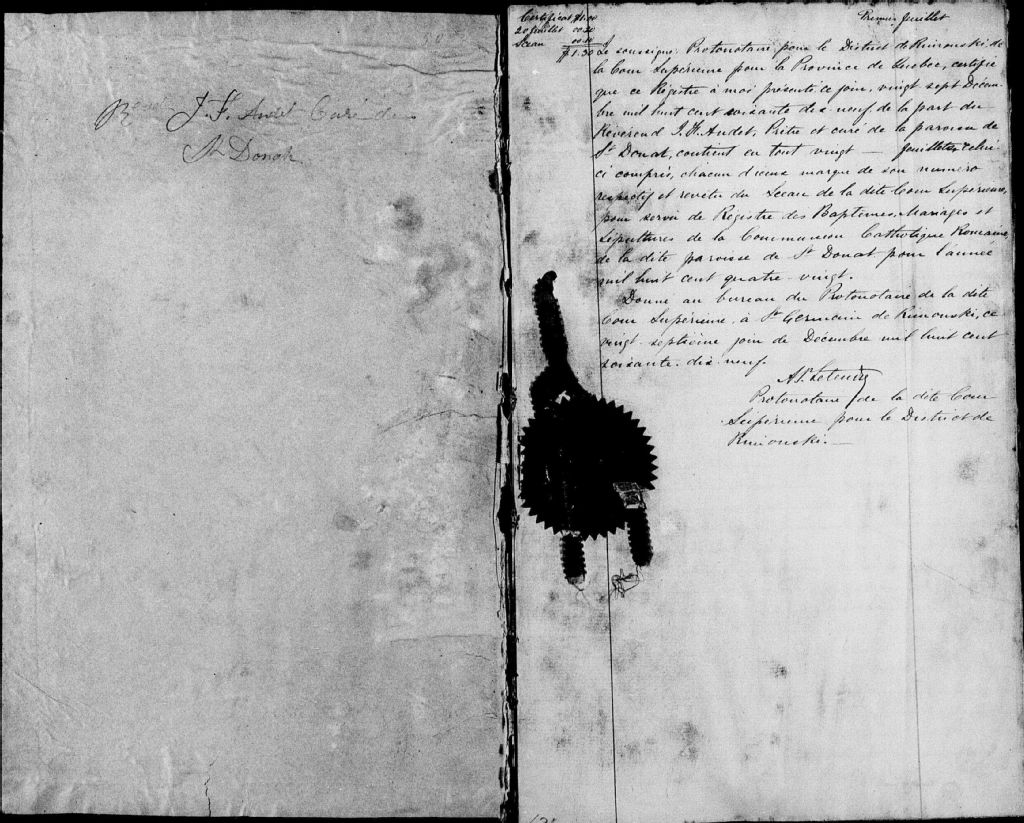 Révd J. F. Audet Curé de
St Donat
Premier feuillet
Certificat $1.00
20 feuillets 00.20
Sceau 00.10
$1.30
Le soussigné Protonotaire pour le District de Rimouski de
la Cour Supérieure pour la Province de Quebec, certifie
que ce Régistre à moi présenté ce jour, vingt sept Décem-
bre mil huit cent soixante dix neuf de la part du
Révérend J. F. Audet, Prêtre et curé de la paroisse de
St Donat, contient en tout vingt — feuillets, celui
ci compris, chacun d'iceux marqué de son numéro
respectif et revêtu du Sceau de la dite Cour Supérieure,
pour servir de Régistre des Baptêmes, Mariages et
Sépultures de la Communion Catholique Romaine,
de la dite paroisse de St Donat pour l'année
mil huit cent quatre-vingt.
Donné au bureau du Protonotaire de la dite
Cour Supérieure, à St Germain de Rimouski, ce
vingt-septième jour de Décembre mil huit cent
soixante-dix-neuf.
Protonotaire de la dite Cour
Supérieure pour le District de
Rimouski.—